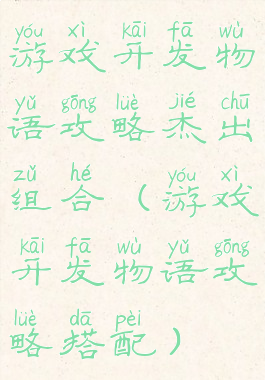 yóu xì kāi fā wù
游戏开发物
yǔ gōng lüè jié chū
语攻略杰出
zǔ hé yóu xì
组合（游戏
kāi fā wù yǔ gōng
开发物语攻
lüè dā pèi
略搭配）